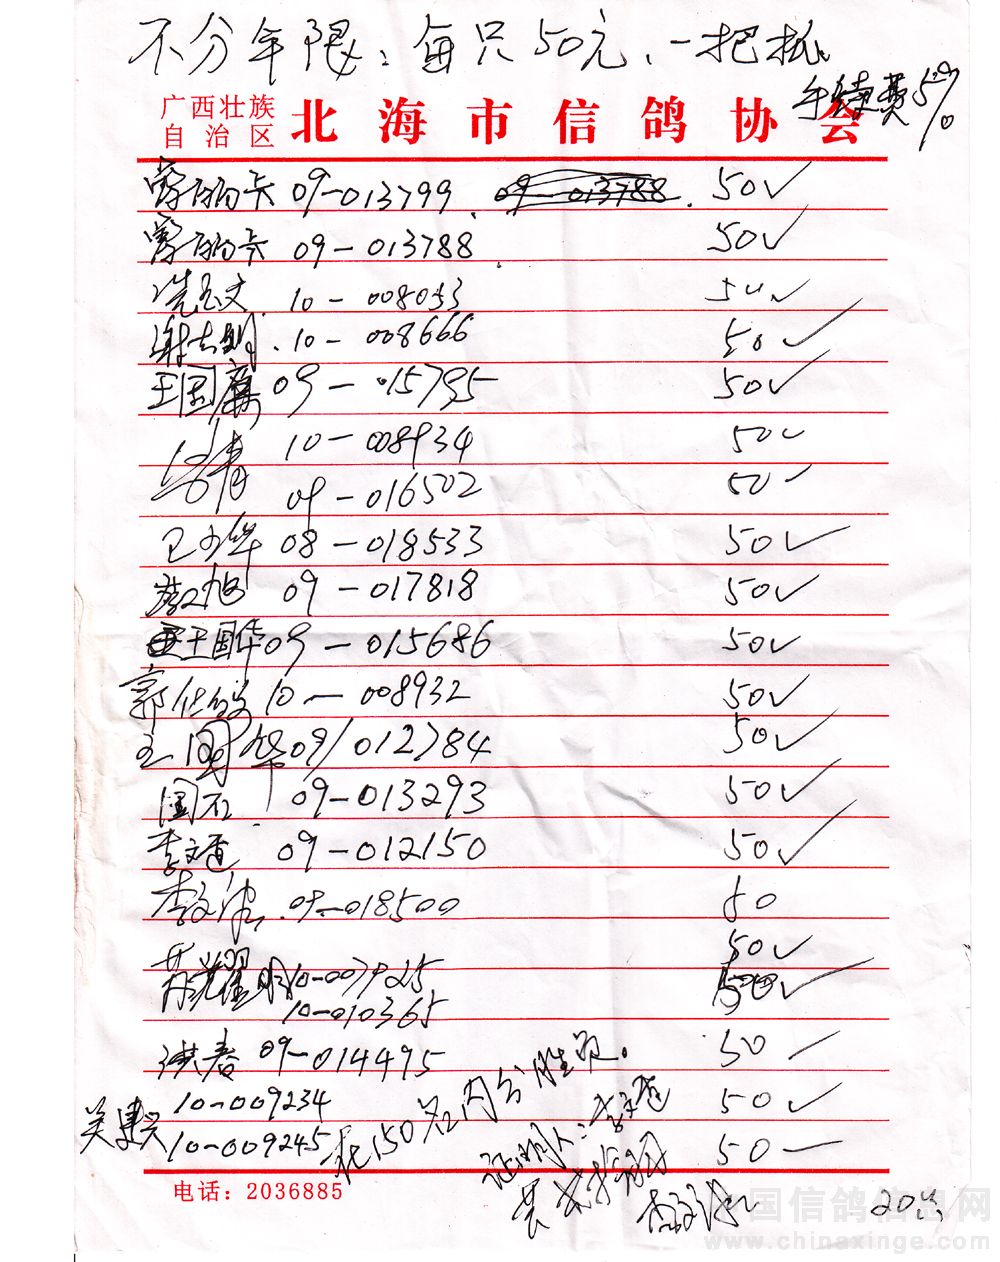 不分年限：每只50元、一把抓
手续费5%
广西壮族自治区 北海市信鸽协会
卡 09-013799 09-013788 50✓
卡 09-013788 50✓
冼玉文 10-008033 50✓
谢 明 10-008666 50✓
王国廉 09-015795 50✓
青 10-008934 50✓
09-016502 50✓
卫少华 08-018533 50✓
旭 09-017818 50✓
王国华 09-015686 50✓
郭 10-008932 50✓
王国华 09/012784 50✓
国石 09-013293 50✓
李文通 09-012150 50✓
李文 09-018500 50
耀明 10-007925 50✓
10-010365 50✓
洪春 09-014495 50
吴建兴 10-009234 50✓
10-009245 50
150名内分
证明人：李文通
电话：2036885
20
中国信鸽信息网
www.chinaxinge.com